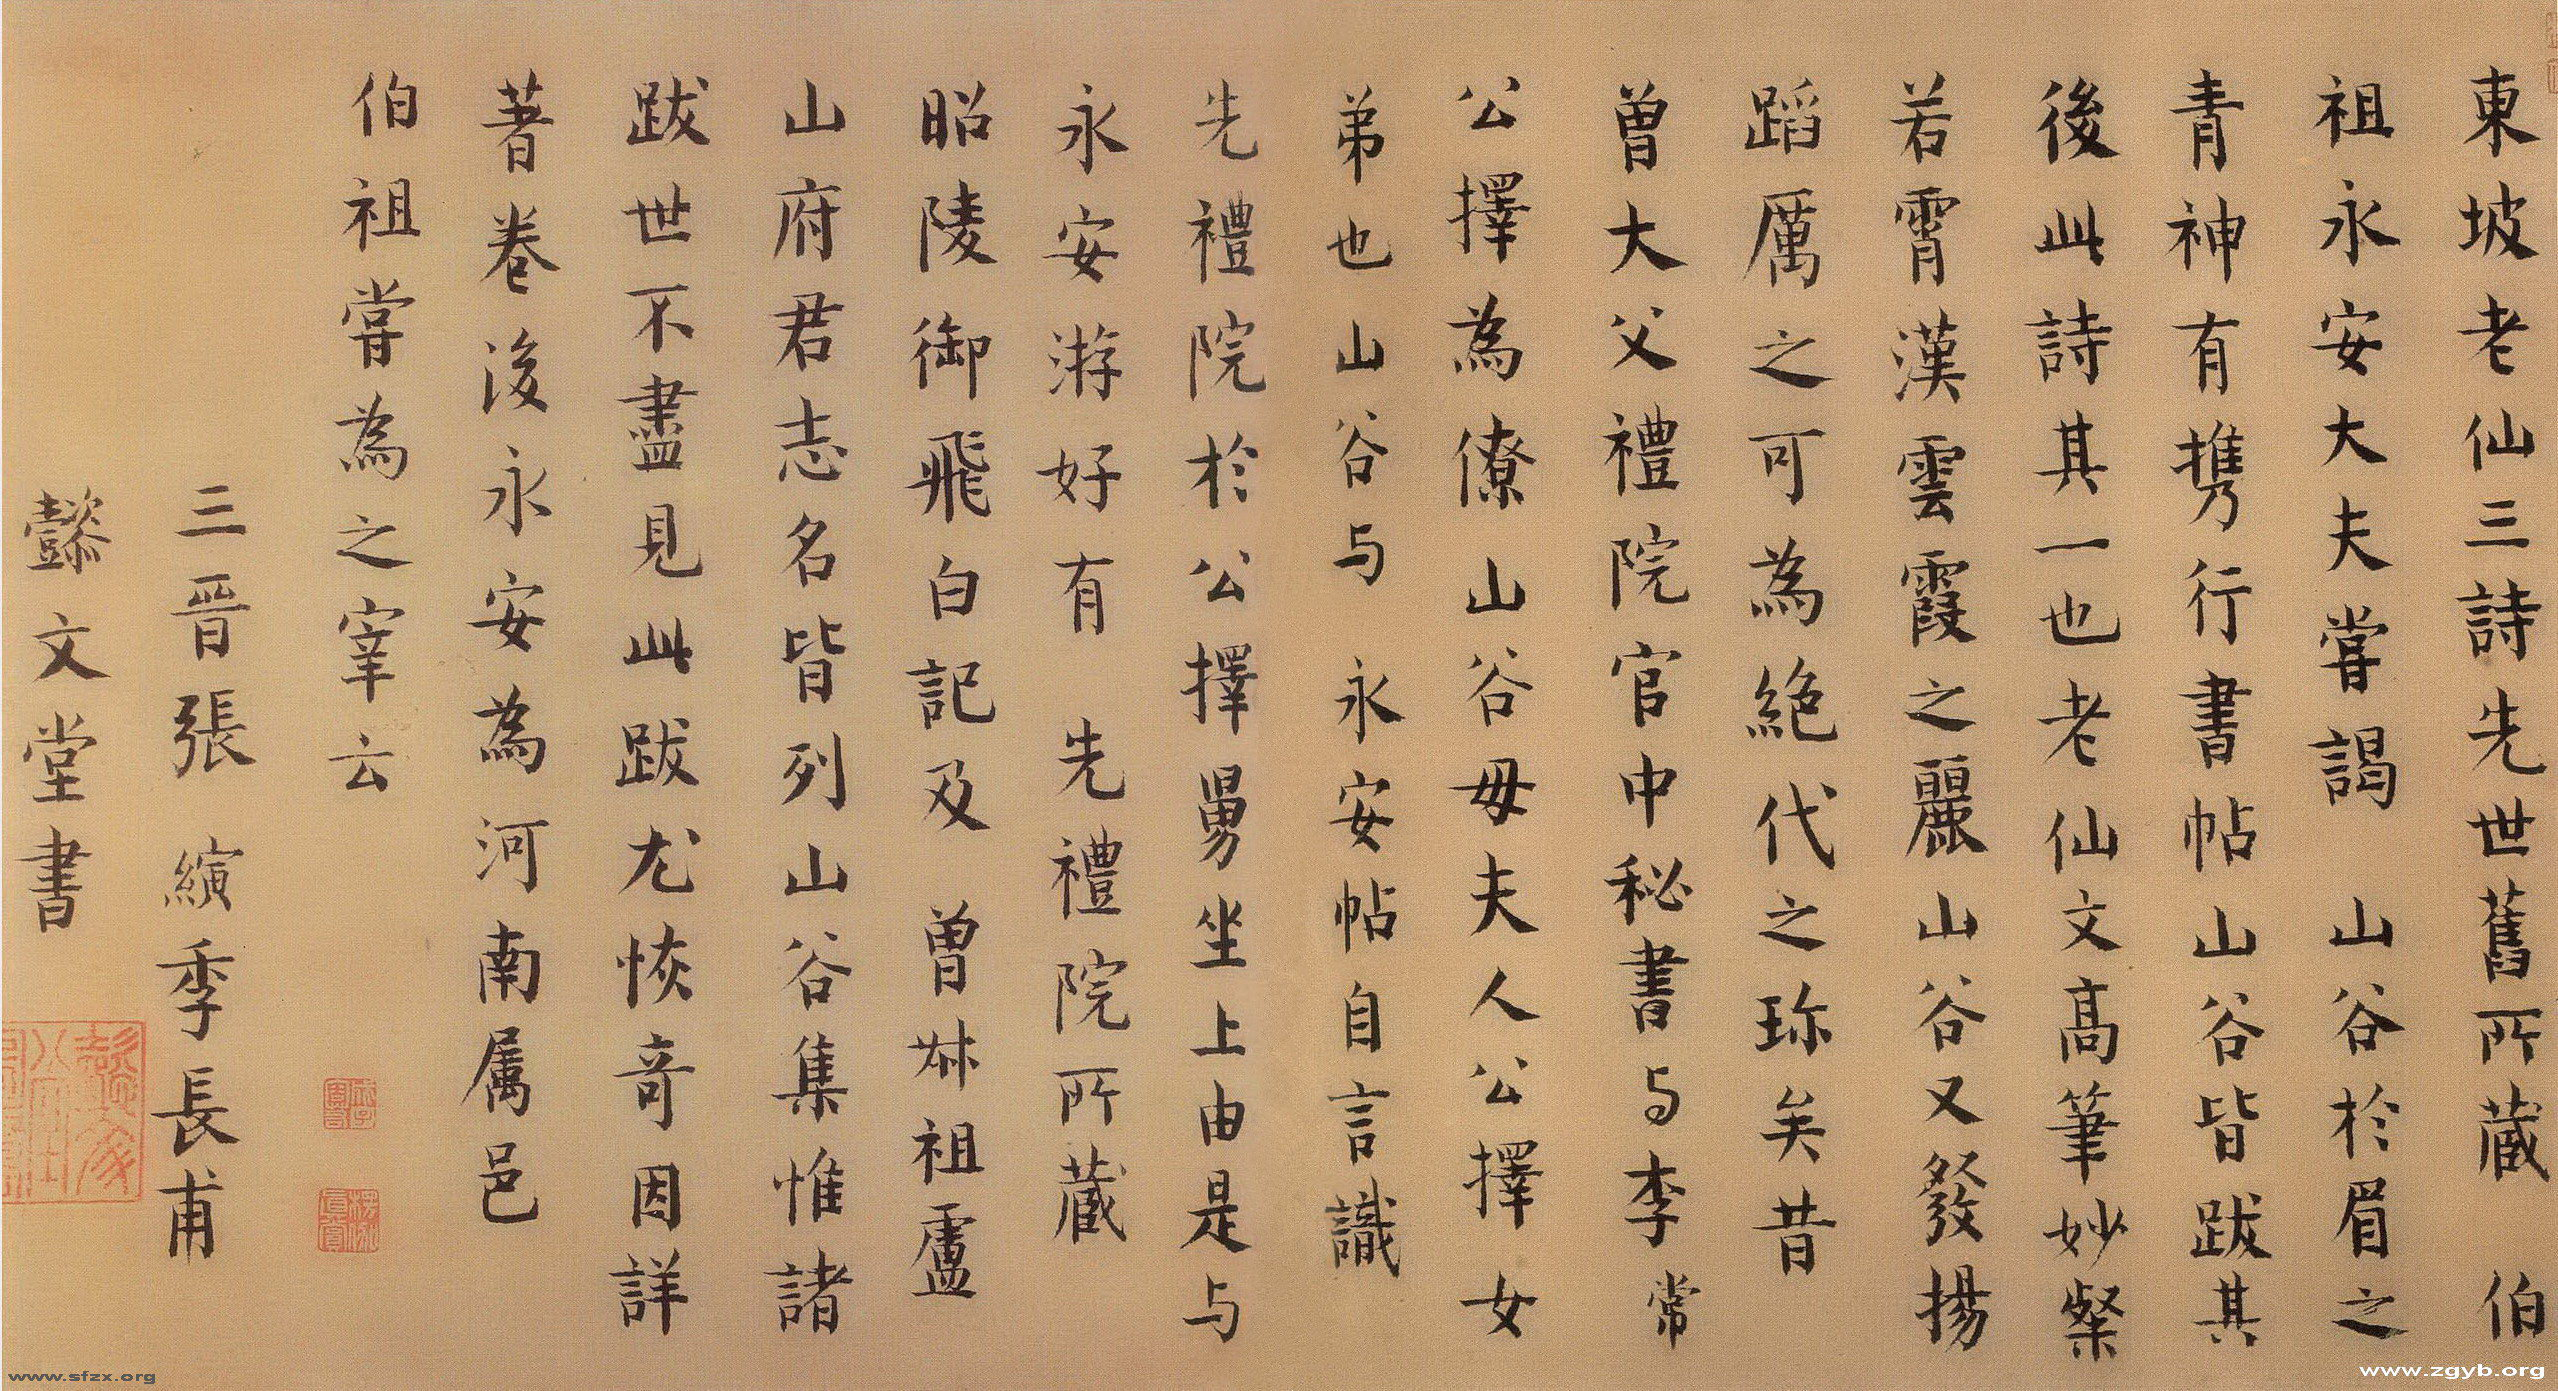 東坡老仙三詩先世舊所藏 伯
祖永安大夫嘗謁 山谷於眉之
青神有攜行書帖山谷皆跋其
後此詩其一也老仙文高筆妙粲
若霄漢雲霞之麗山谷又發揚
蹈厲之可為絶代之珎矣昔
曾大父禮院官中秘書与李常
公擇為僚山谷母夫人公擇女
弟也山谷与 永安帖自言識
先禮院於公擇舅坐上由是与
永安游好有 先禮院所藏
昭陵御飛白記及 曾叔祖盧
山府君志名皆列山谷集惟諸
跋世不盡見此跋尤恢奇因詳
著卷後永安為河南属邑
伯祖嘗為之宰云
三晋張 縯季長甫
懿文堂書
www.sfzx.org
www.zgyb.org